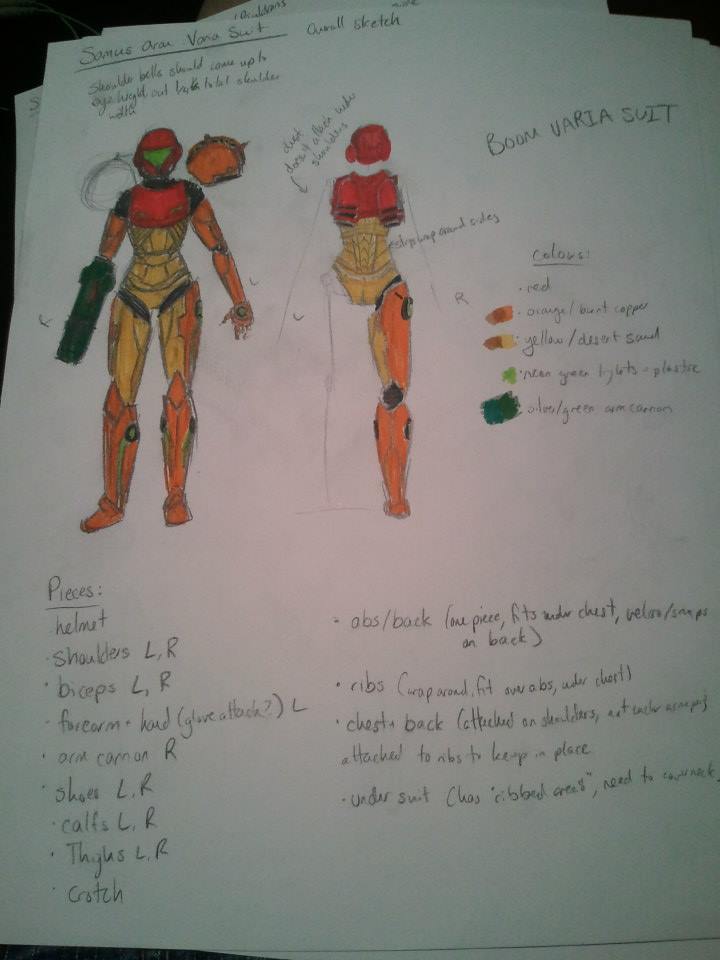 Samus Aran Varia Suit
Overall sketch
Shoulder bells should come up to
eye height out
total shoulder
width
chest
doesn't attach under
shoulders
BOOM VARIA SUIT
wrap around sides
L
R
L
R
Colours:
· red
· orange/burnt copper
· yellow/desert sand
· neon green lights = plastic
· silver/green arm cannon
Pieces:
helmet
· Shoulders L, R
· biceps L, R
· forearm + hand (glove attach?) L
· arm cannon R
· shoes L, R
· calfs L, R
· Thighs L, R
· crotch
· abs/back (one piece, fits under chest, velcro/snaps
on back)
· ribs (wrap around, fit over abs, under chest)
· chest + back (attached on shoulders, not under armpits)
attached to ribs to keep in place
· under suit (has "ribbed areas", need to cover neck